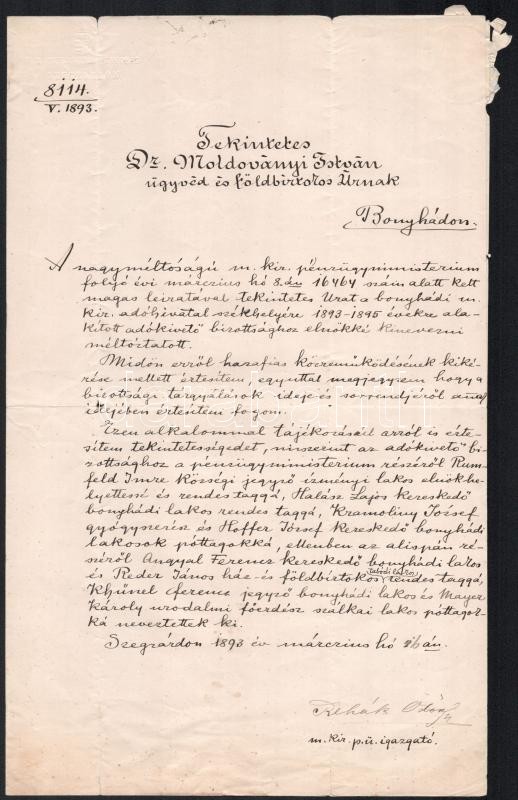 8114.
V. 1893.
Tekintetes
Dr. Moldoványi István
ügyvéd és földbirtokos Úrnak
Bonyhádon.
A nagyméltóságú m. kir. pénzügyministerium
folyó évi márczius hó 8.án 16464 szám alatt kelt
magas leiratával tekintetes Urat a bonyhádi m.
kir. adóhivatal székhelyére 1893-1895 évekre ala-
kitott adókivető bizottsághoz elnökké kinevezni
méltóztatott.
Midőn erről hazafias közreműködésének kiké-
rése mellett értesitem, egyuttal megjegyzem hogy a
bizottsági tárgyalások ideje és sorrendjéről annak
idejében értesiteni fogom.
Ezen alkalommal tájékozásúl arról is érte-
sitem tekintetességedet, miszerint az adókivető bi-
zottsághoz a pénzügyministerium részéről Rum-
feld Imre községi jegyző izményi lakos elnökh-
elyettessé és rendes taggá, Halász Lajos kereskedő
bonyhádi lakos rendes taggá, Kramolin József
gyógyszerész és Hoffer József kereskedő bonyhádi
lakosok póttagokká, ellenben az alispán ré-
széről Angyal Ferencz kereskedő bonyhádi lakos
és Reder János ház- és földbirtokos tabódi lakos rendes taggá,
Khünel Ferencz jegyző bonyhádi lakos és Mayer
Károly urodalmi főerdész szálkai lakos póttagok-
ká neveztettek ki.
Szegzárdon 1893 év márczius hó 26án.
Rehák Ödön
m. kir. p.ü. igazgató.